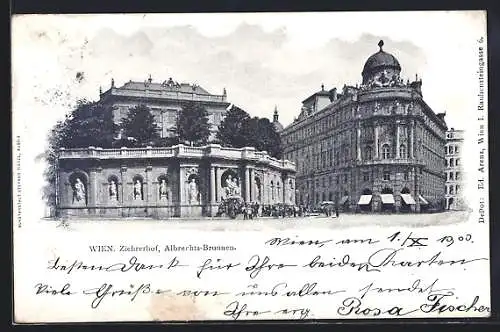 WIEN. Ziehrerhof, Albrechts-Brunnen.
Wien, am 1./IX 1900.
Besten Dank für Ihre beiden Karten
Viele Grüße von uns allen sendet
Ihre erg. Rosa Fischer
Depot: Ed. Arenz, Wien I. Rauhensteingasse 6.